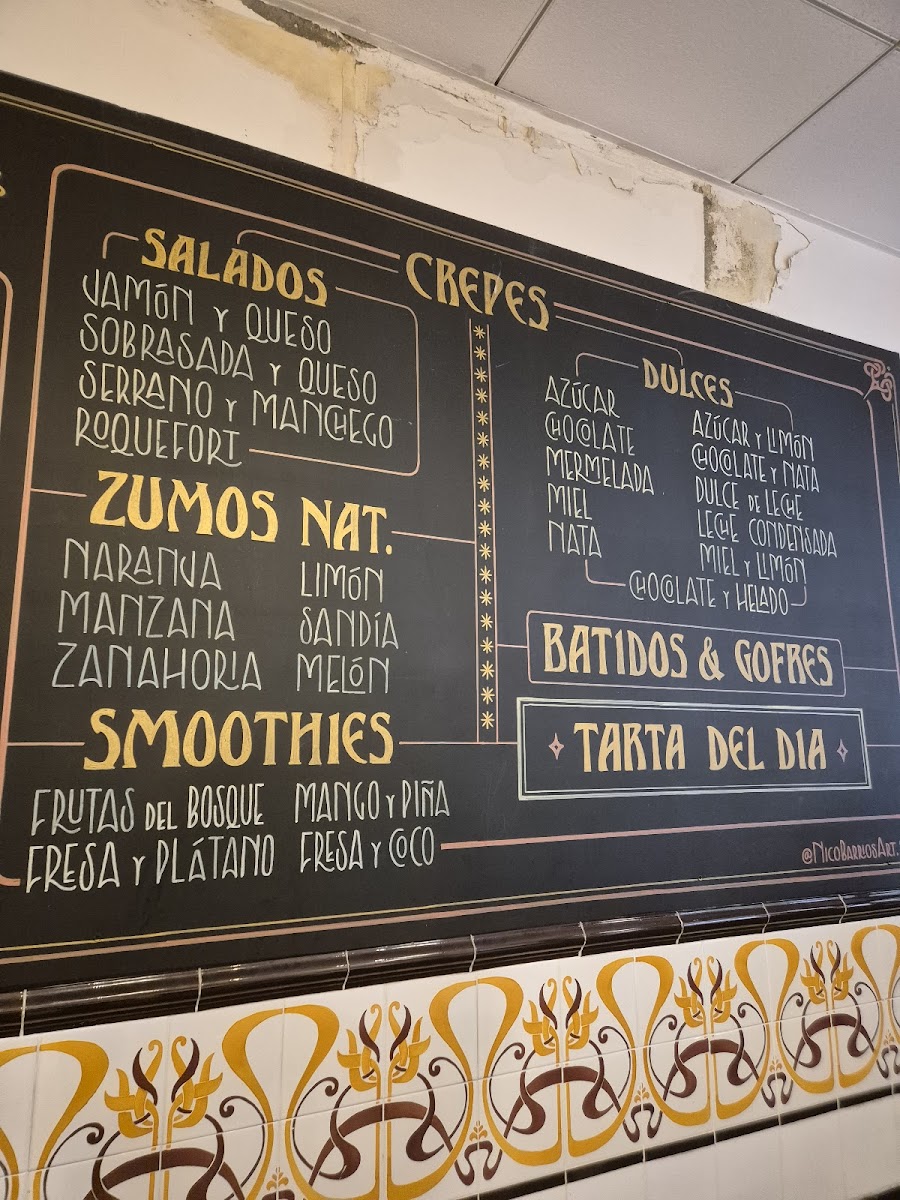 CREPES
SALADOS
JAMÓN Y QUESO
SOBRASADA Y QUESO
SERRANO Y MANCHEGO
ROQUEFORT
ZUMOS NAT.
NARANJA
MANZANA
ZANAHORIA
LIMÓN
SANDÍA
MELÓN
SMOOTHIES
FRUTAS DEL BOSQUE
FRESA Y PLÁTANO
MANGO Y PIÑA
FRESA Y COCO
DULCES
AZÚCAR
CHOCOLATE
MERMELADA
MIEL
NATA
AZÚCAR Y LIMÓN
CHOCOLATE Y NATA
DULCE DE LECHE
LECHE CONDENSADA
MIEL Y LIMÓN
CHOCOLATE Y HELADO
BATIDOS & GOFRES
TARTA DEL DIA
@NICOBARRIOSART.